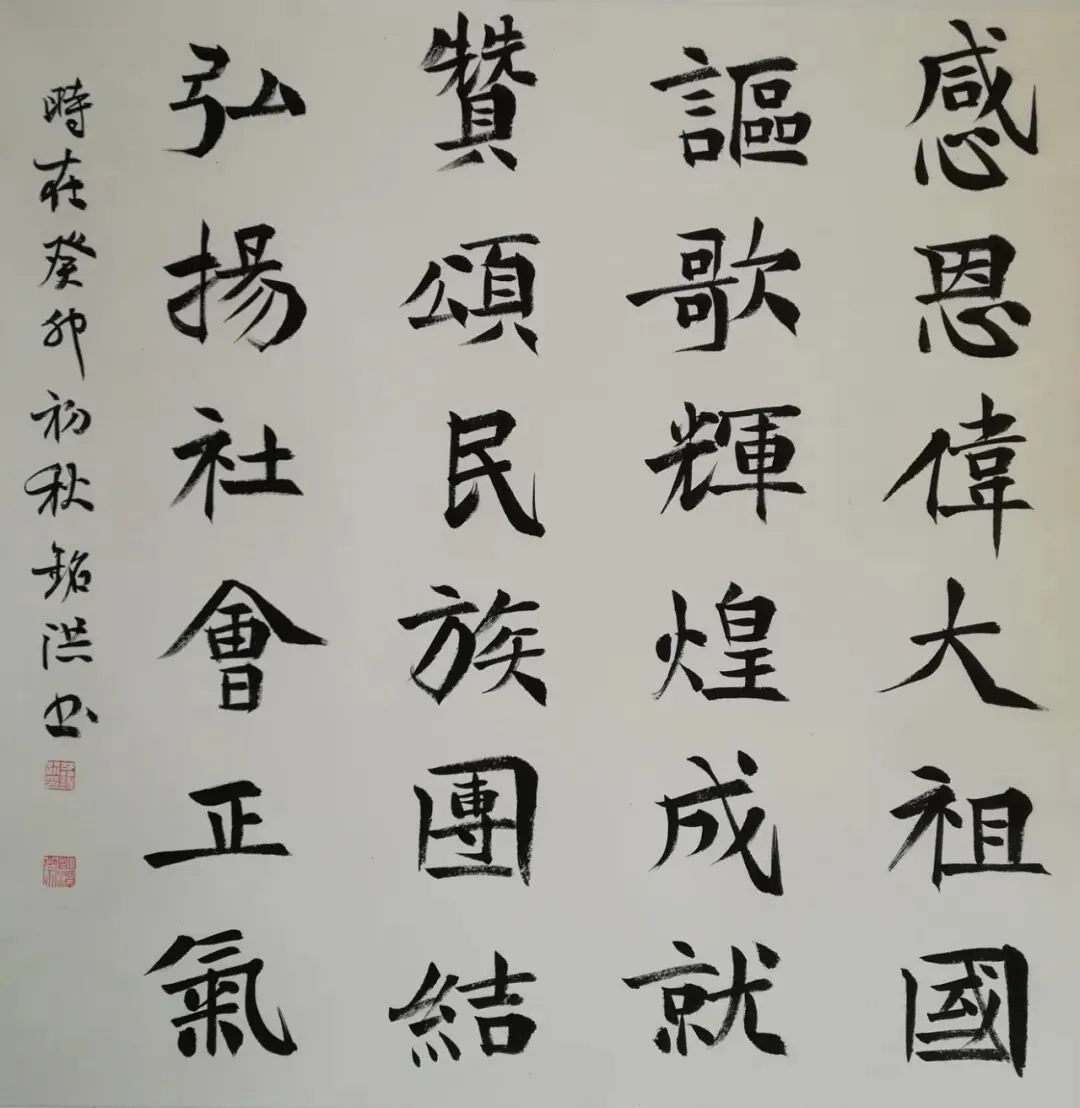 感恩偉大祖國
謳歌輝煌成就
贊頌民族團結
弘揚社會正氣
時在癸卯初秋銘洪书